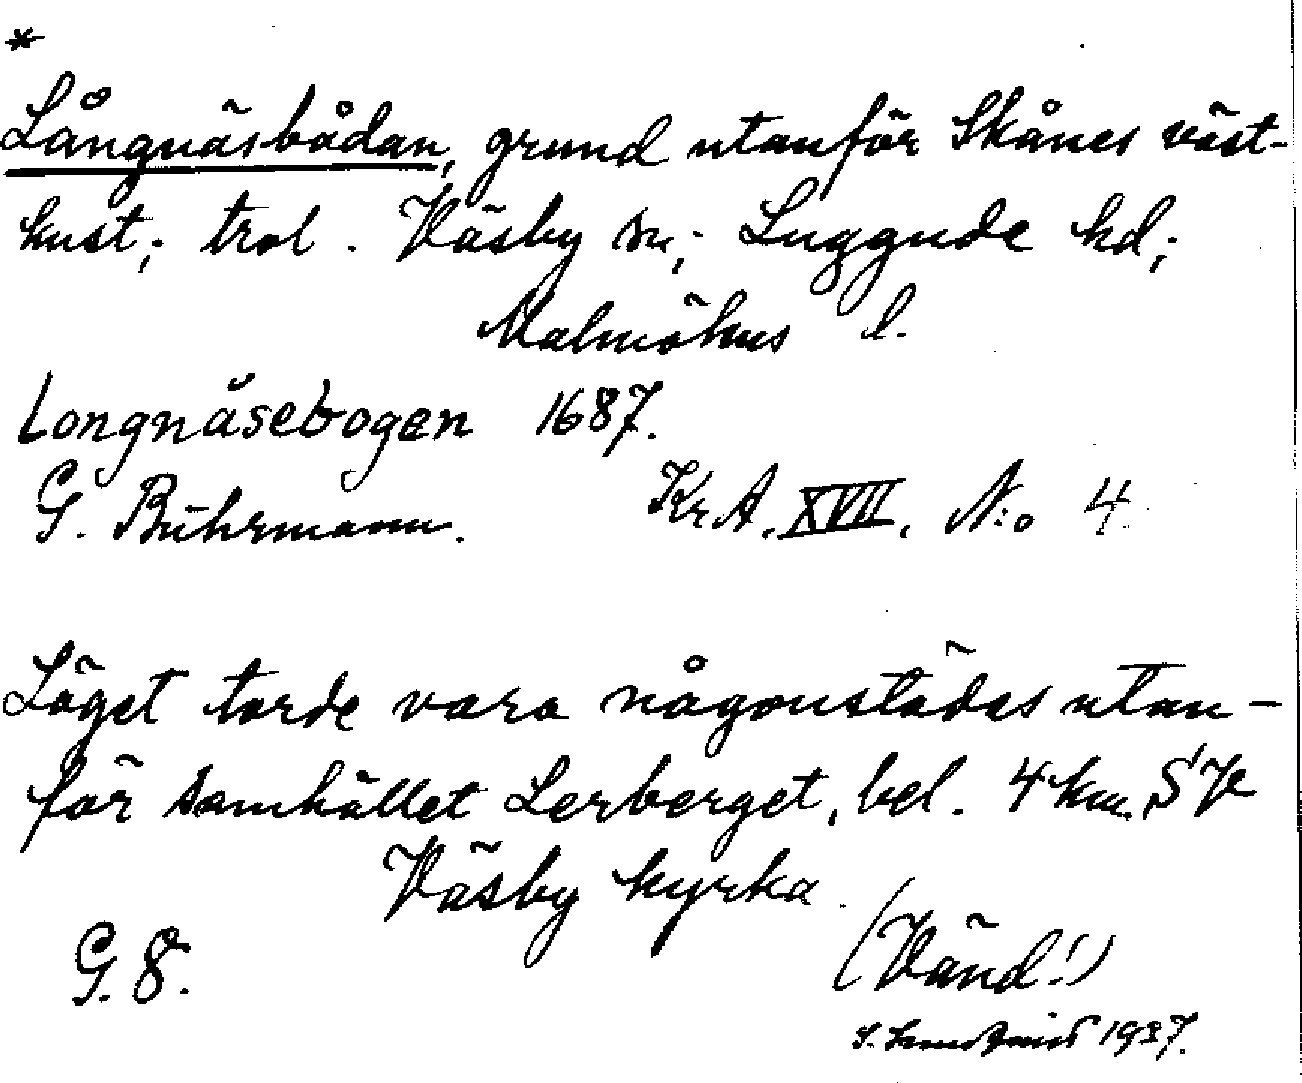 *
Långnäsbådan, grund utanför Skånes väst-
kust; trol. Väsby sn; Luggude hd;
Malmöhus l.
Longnäsebogen 1687.
G. Buhrmann. KrA. XVII. N:o 4.
Läget torde vara någonstädes utan-
för samhället Lerberget, bel. 4 km. SV
Väsby kyrka.
G. 8. (Vänd!)
1937.